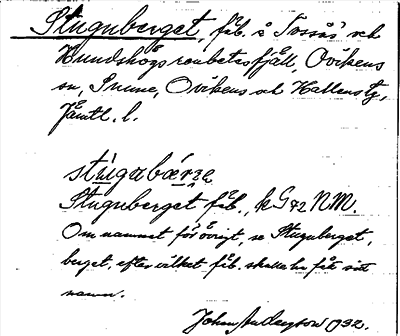 Stuguberget, fäb. å Tossås' och
Hundshögs renbetesfjäll, Ovikens
sn, Sunne, Ovikens och Hallens tg,
Jämtl. l.
stùgabǽrʒe
Stuguberget fäb., kG72 NM.
Om namnet för övrigt, se Stuguberget,
berget, efter vilket fäb. skall ha fått sitt
namn.
Johan Anderzon 1932.